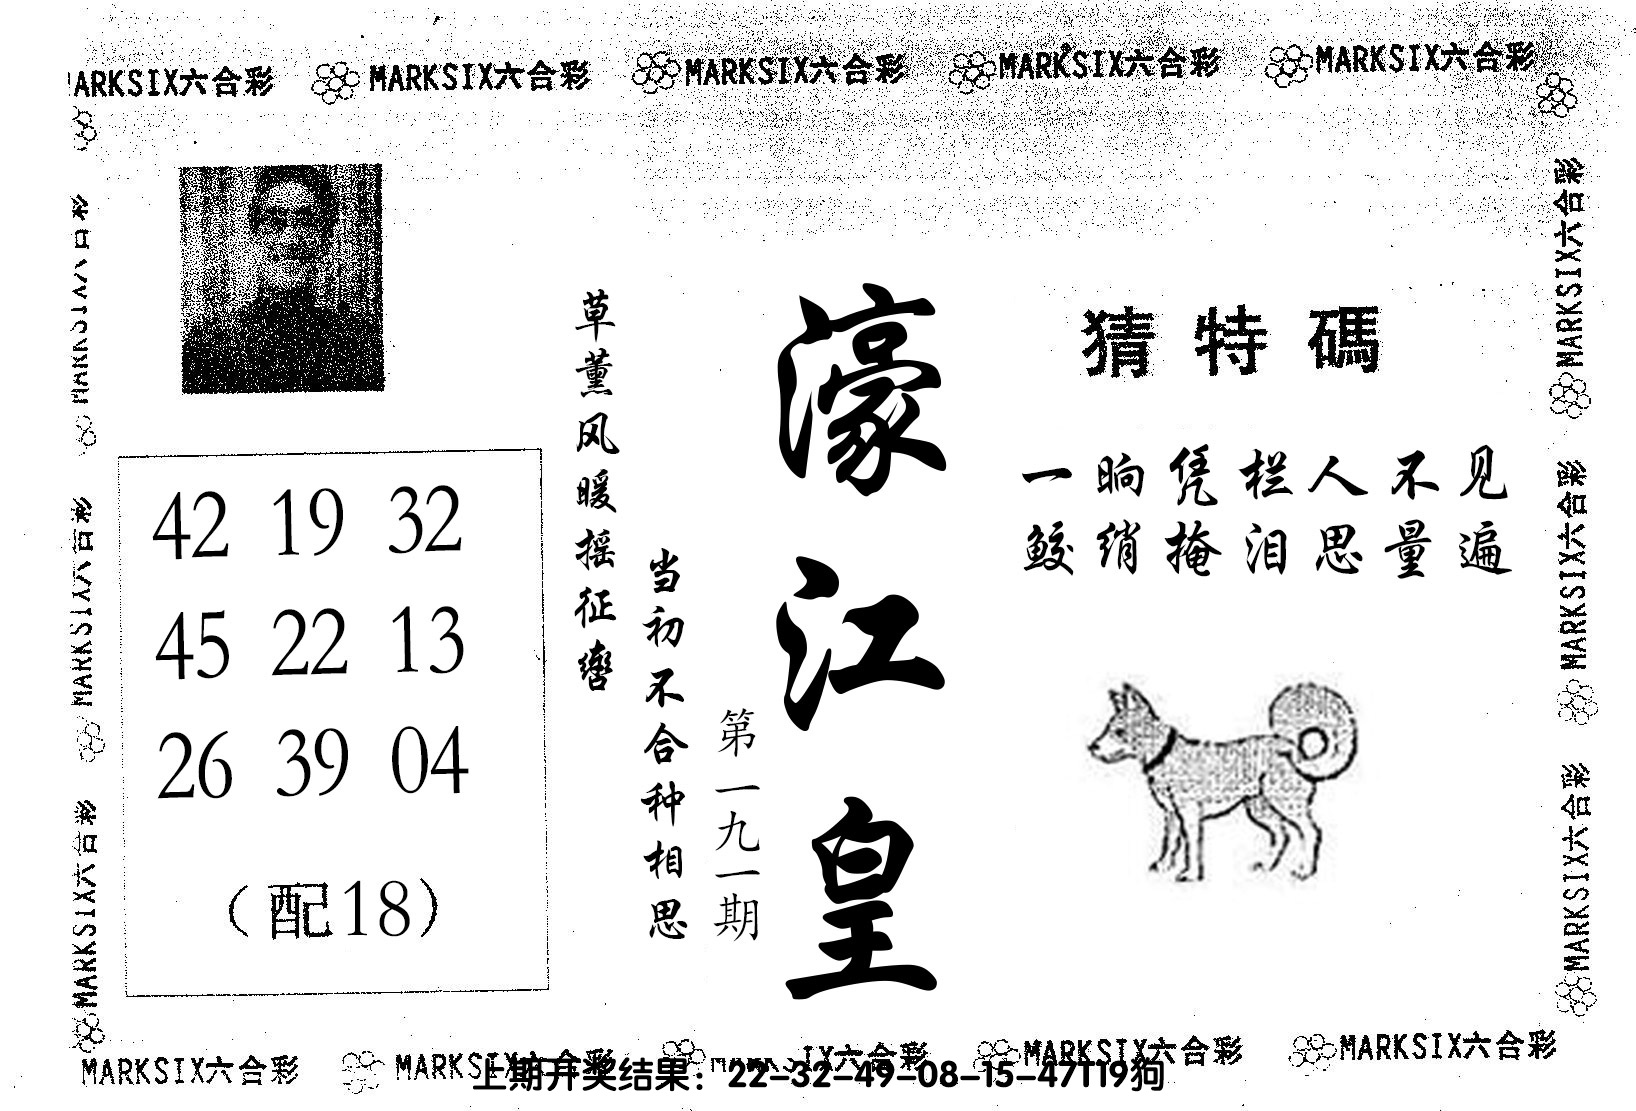 MARKSIX六合彩 MARKSIX六合彩 MARKSIX六合彩 MARKSIX六合彩 MARKSIX六合彩
猜特碼
一晌凭栏人不见
鲛绡掩泪思量遍
濠江皇
第一九一期
当初不合种相思
草薰风暖摇征辔
42 19 32
45 22 13
26 39 04
(配18)
MARKSIX六合彩
MARKSIX六合彩
MARKSIX六合彩
MARKSIX六合彩
MARKSIX六合彩
MARKSIX六合彩
MARKSIX六合彩 MARKSIX六合彩 MARKSIX六合彩 MARKSIX六合彩 MARKSIX六合彩
上期开奖结果：22-32-49-08-15-47T19狗